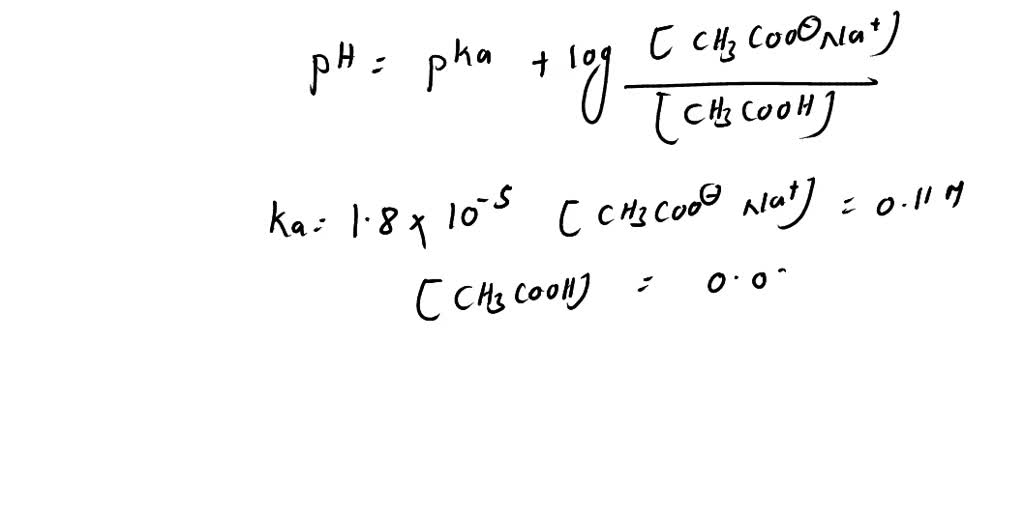 pH = pka + log [CH3COO⊖Na+] / [CH3COOH]
ka = 1.8 x 10-5 [CH3COO⊖ Na+] = 0.11 M
[CH3COOH] = 0.0